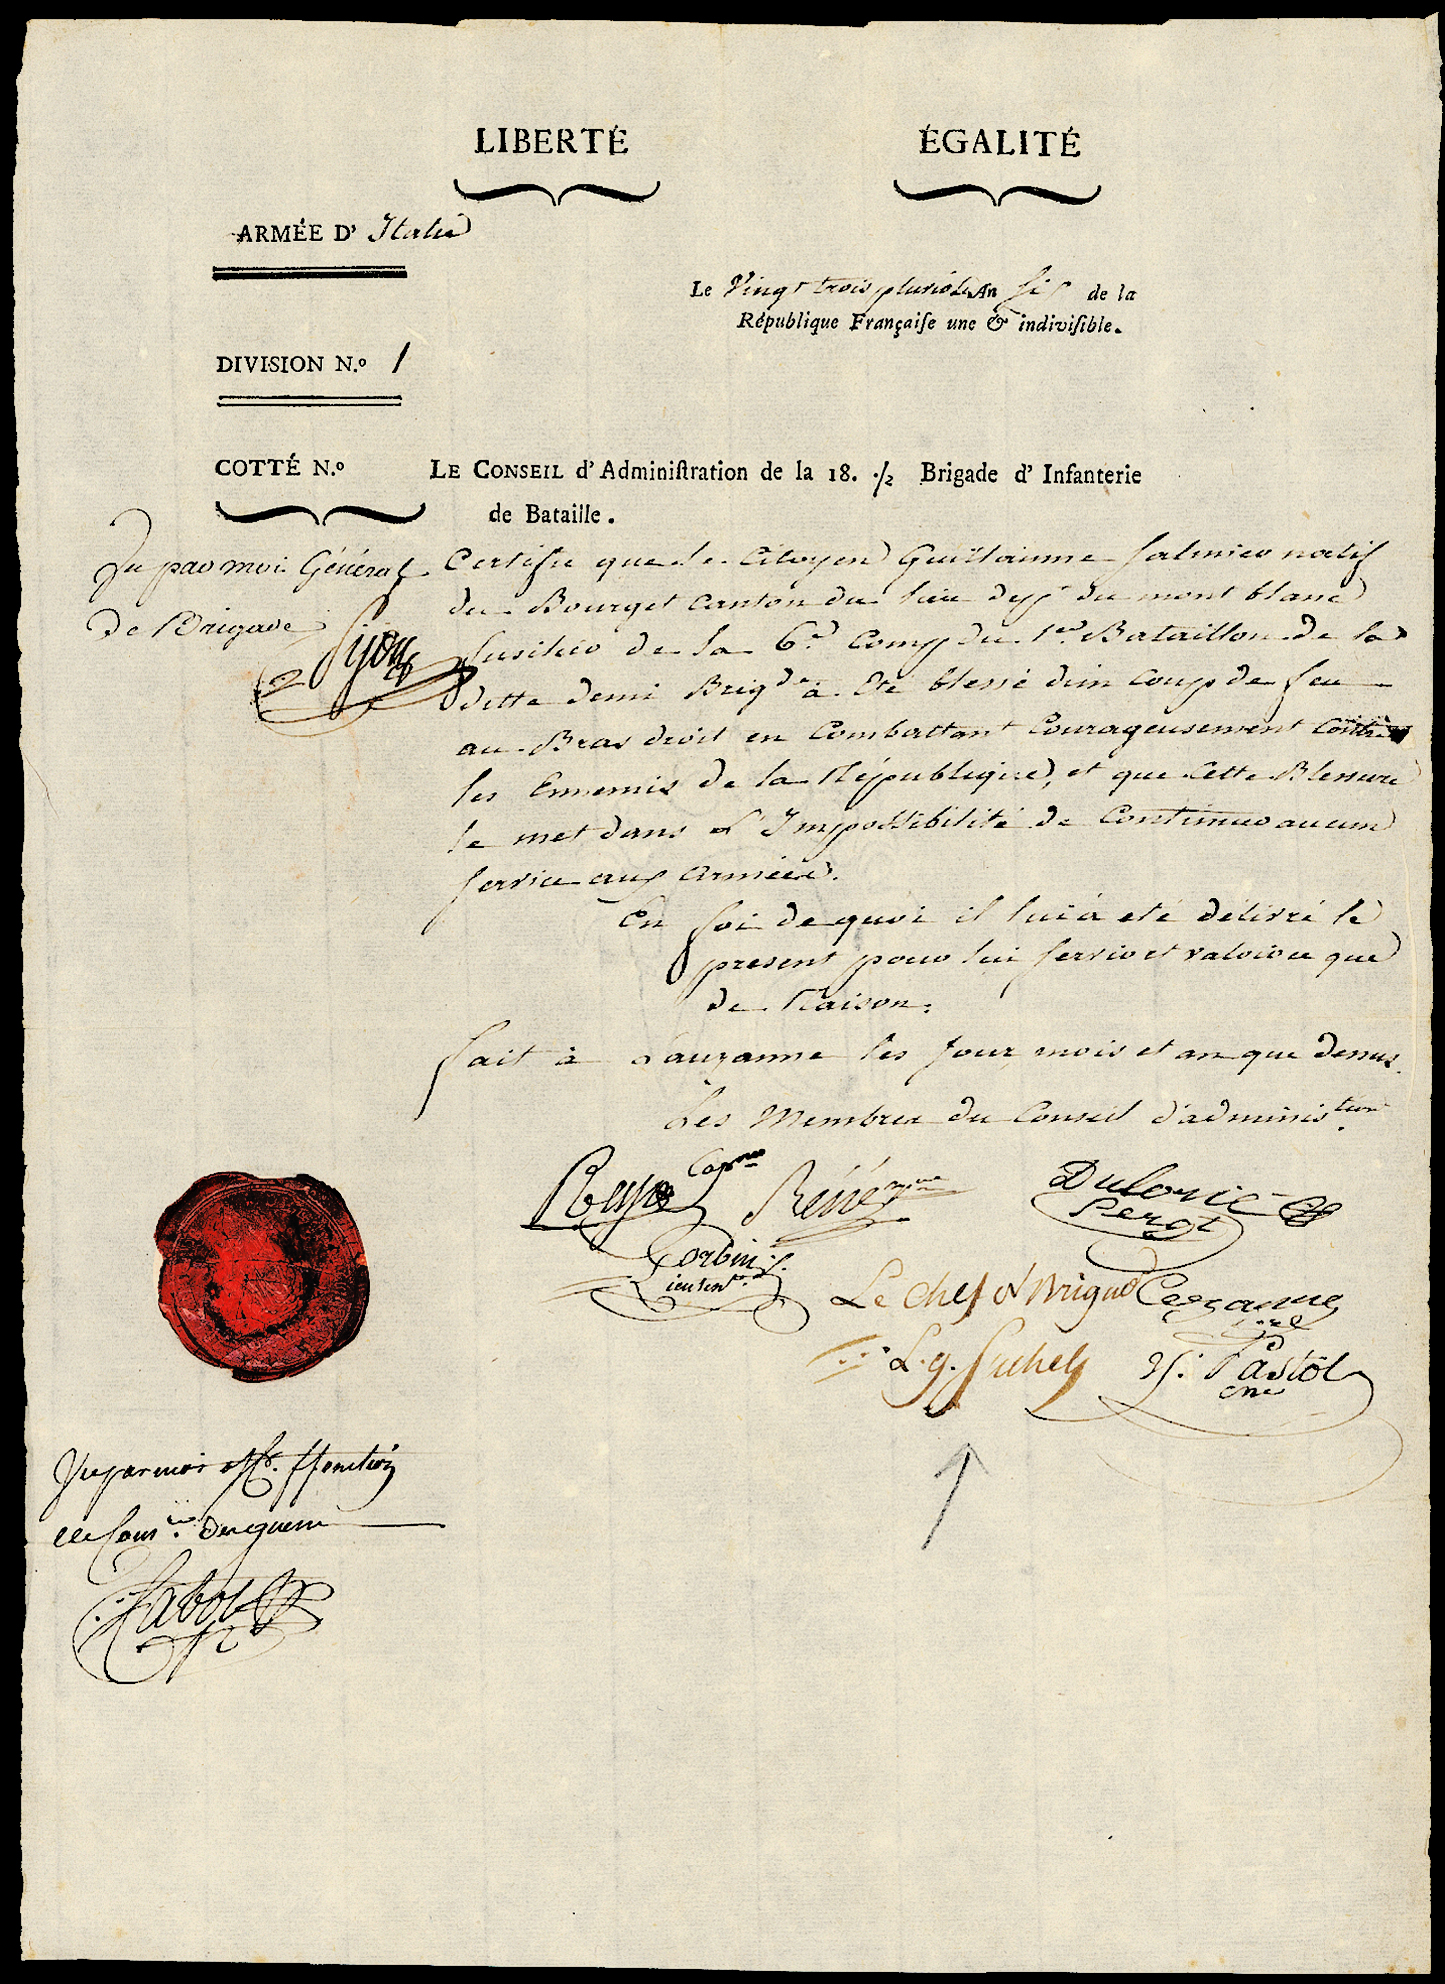 LIBERTÉ ÉGALITÉ
ARMÉE D' Italie
Le Vingt trois pluviose An six de la
République Françaiſe une & indiviſible.
DIVISION N.º 1
COTTÉ N.º
LE CONSEIL d'Adminiſtration de la 18. ./2 Brigade d'Infanterie
de Bataille.
Certifie que le Citoyen Guillaume natif
du Bourget Canton du dit du mont blanc
fusilier de la 6.e Comp du 1.er Bataillon de la
ditte demi Brig.de à Eté blessé d'un coup de feu
au Bras droit en Combattant Courageusement Contre
les Ennemis de la République, et que Cette Blessure
le met dans L'Impossibilité de Continuer aucun
service aux armées.
En foi de quoi il lui à eté délivré le
present pour lui servir et valoir ce que
de Raison.
fait à Lauzanne les jour, mois et an que dessus.
Les Membres du Conseil d'adminis.tion
Vu par moi Général
de Brigade
Capne
René
Dulorie
Perot
Corbin
Lieutent
Le chef d Brigade
L. g. Suchet
Cezanne
Pastol
Vu par moi
de guerre